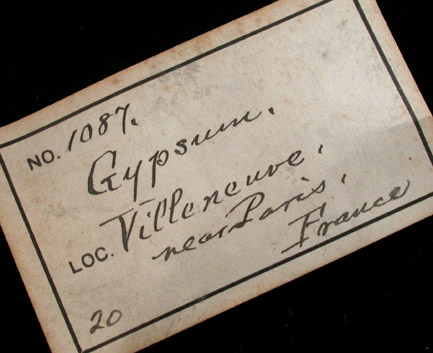 NO. 1087.
Gypsum.
LOC. Villeneuve,
near Paris,
France
20